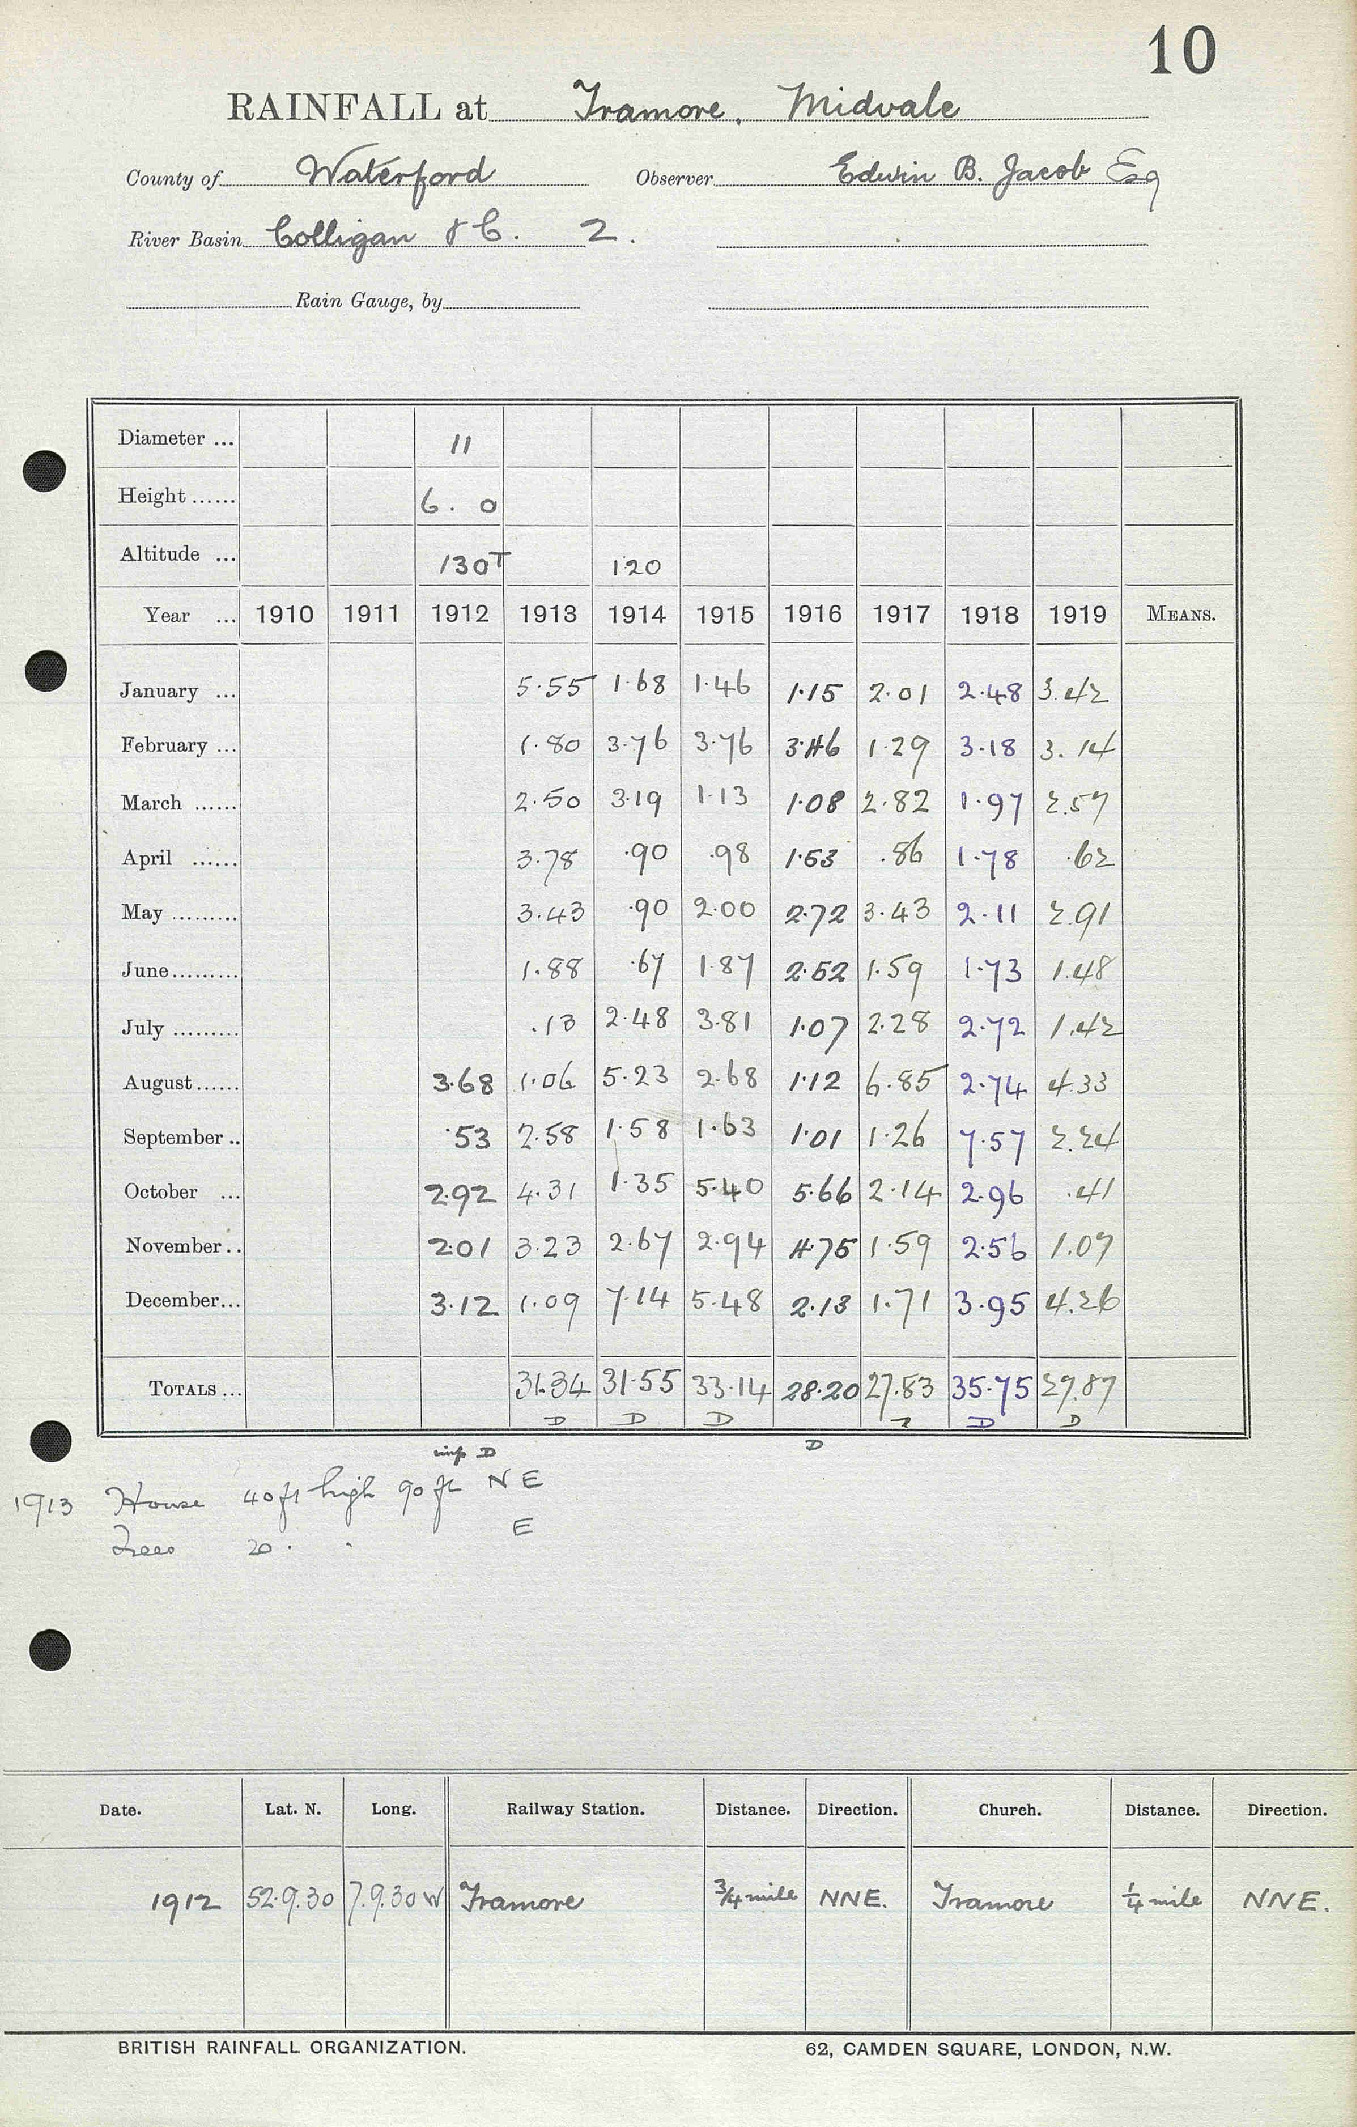 10
RAINFALL at Tramore, Midvale
County of Waterford Observer Edwin B. Jacob Esq
River Basin Colligan &C. 2.
Rain Gauge, by
Diameter ... 11
Height ...... 6. 0
Altitude ... 130T 120
Year ... 1910 1911 1912 1913 1914 1915 1916 1917 1918 1919 MEANS.
January ... 5.55 1.68 1.46 1.15 2.01 2.48 3.42
February ... 1.80 3.76 3.76 3.46 1.29 3.18 3.14
March ...... 2.50 3.19 1.13 1.08 2.82 1.97 2.57
April ...... 3.78 .90 .98 1.53 .86 1.78 .62
May ......... 3.43 .90 2.00 2.72 3.43 2.11 2.91
June......... 1.88 .67 1.87 2.52 1.59 1.73 1.48
July ......... .13 2.48 3.81 1.07 2.28 2.72 1.42
August...... 3.68 1.06 5.23 2.68 1.12 6.85 2.74 4.33
September .. .53 2.58 1.58 1.63 1.01 1.26 7.57 2.24
October ... 2.92 4.31 1.35 5.40 5.66 2.14 2.96 .41
November.. 2.01 3.23 2.67 2.94 4.75 1.59 2.56 1.07
December... 3.12 1.09 7.14 5.48 2.13 1.71 3.95 4.26
TOTALS ... 31.34 31.55 33.14 28.20 27.83 35.75 27.87
D D D D D
D D
1913 House 40 ft high 90 ft NE
Trees 20 . . E
Date. Lat. N. Long. Railway Station. Distance. Direction. Church. Distance. Direction.
1912 52.9.30 7.9.30 W Tramore 3/4 mile NNE. Tramore 1/4 mile NNE.
BRITISH RAINFALL ORGANIZATION. 62, CAMDEN SQUARE, LONDON, N.W.